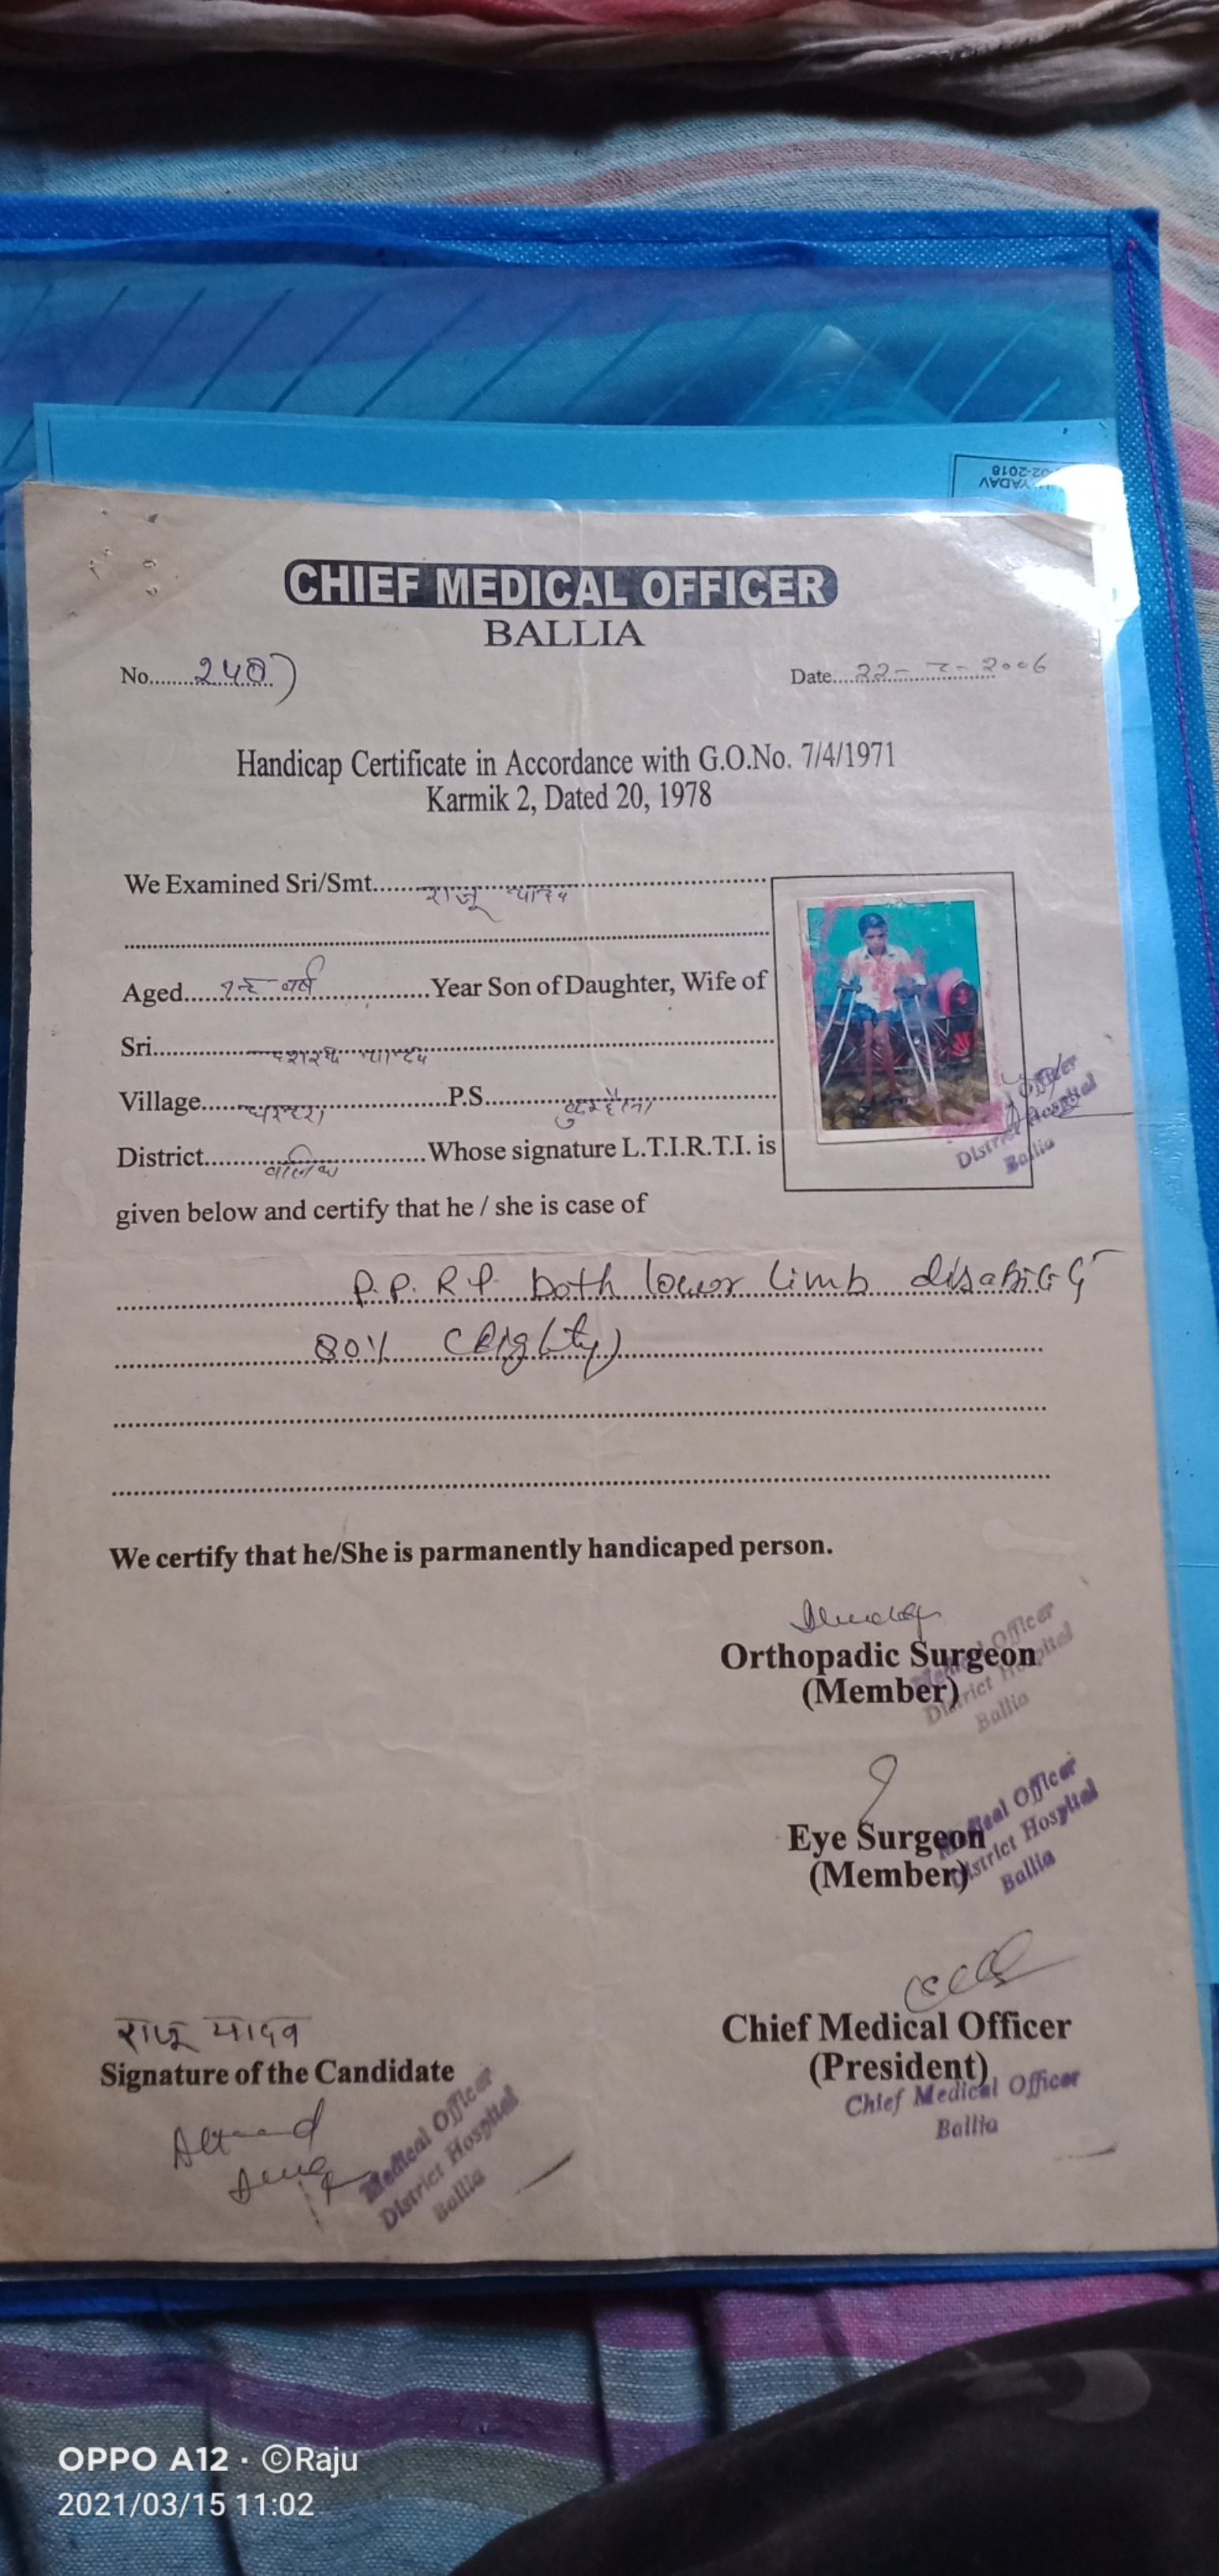 02-2018
YADAV
CHIEF MEDICAL OFFICER
BALLIA
No........240)
Date....22-7-2006
Handicap Certificate in Accordance with G.O.No. 7/4/1971
Karmik 2, Dated 20, 1978
We Examined Sri/Smt........राजू यादव
Aged...... वर्ष ..............Year Son of Daughter, Wife of
Sri............
Village............P.S............
District............Whose signature L.T.I.R.T.I. is
given below and certify that he / she is case of
P.P.R.P. both lower limb disability
80% (Eighty)
We certify that he/She is parmanently handicaped person.
Orthopadic Surgeon
(Member)
Medical Officer
District Hospital
Ballia
Eye Surgeon
(Member)
Medical Officer
District Hospital
Ballia
Chief Medical Officer
(President)
Chief Medical Officer
Ballia
राजू यादव
Signature of the Candidate
Medical Officer
District Hospital
Ballia
Officer
District Hospital
Ballia
OPPO A12 · ©Raju
2021/03/15 11:02